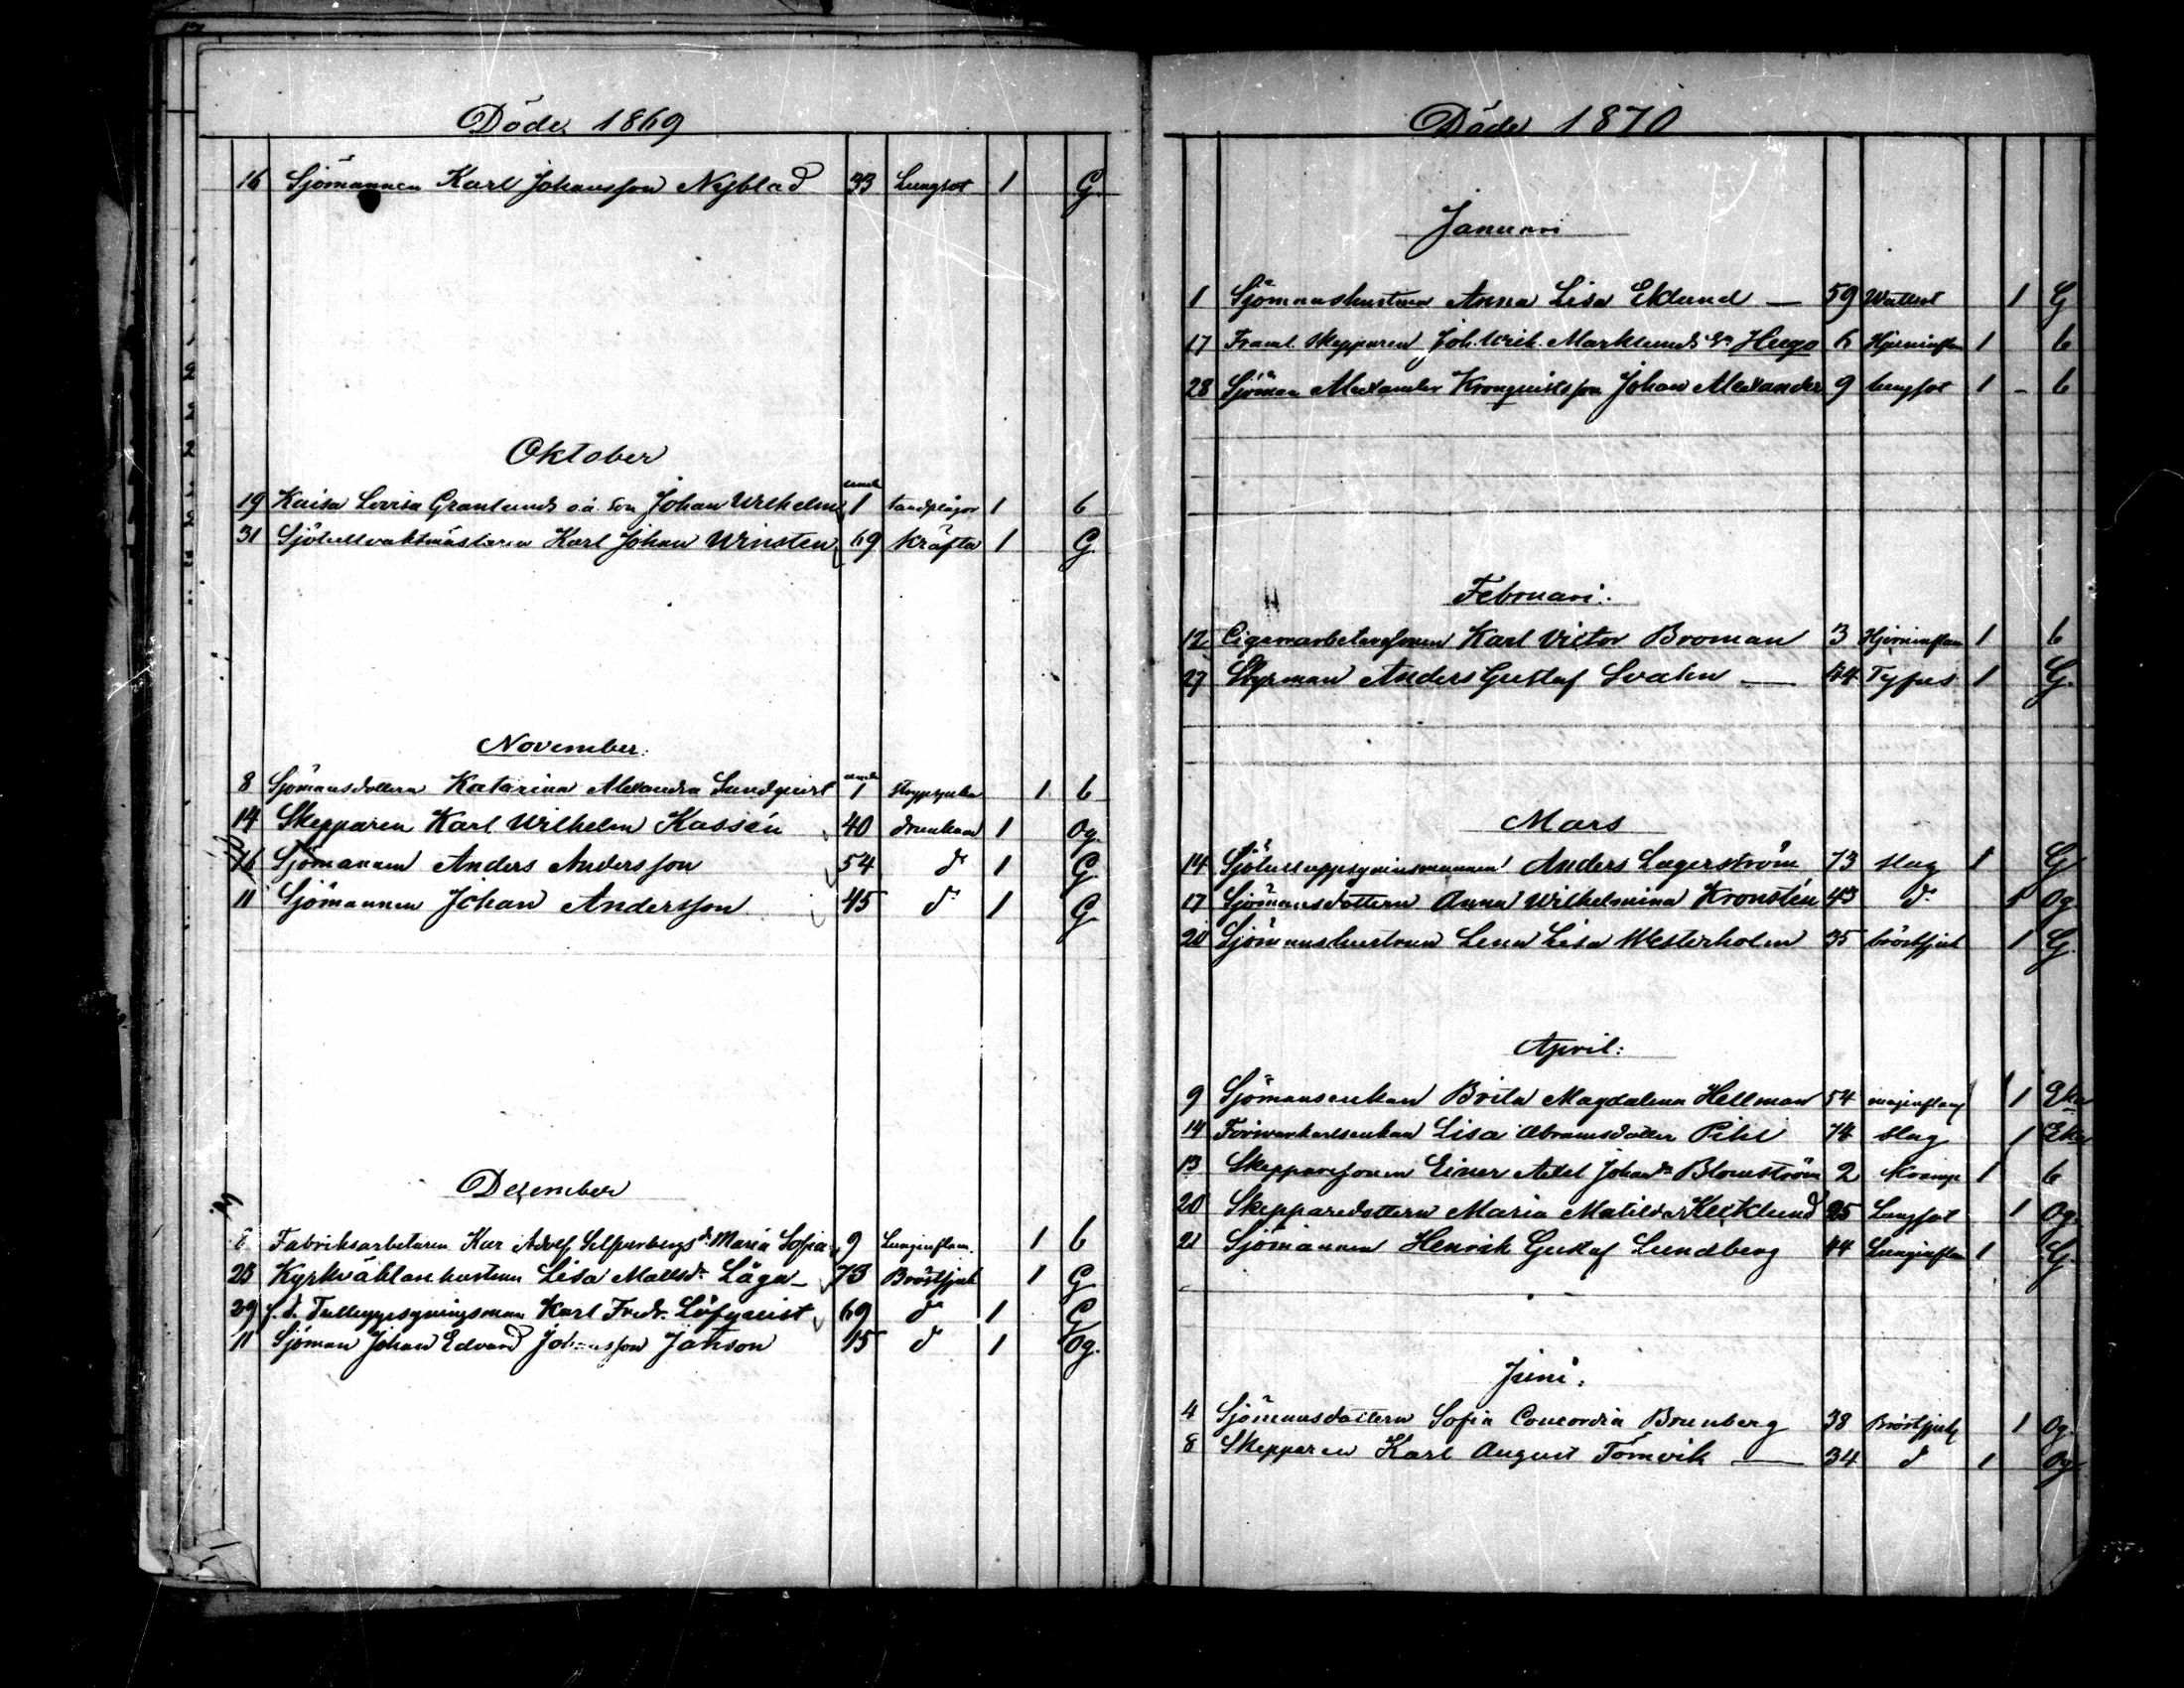 Döde 1869
16 Sjömannen Karl Johansson Nyblad 33 Lungsot 1 G.
Oktober
19 Kaisa Lovisa Granlunds o.ä. Son Johan Wilhelm 1 tandplågor 1 b
31 Sjötullvaktmästaren Karl Johan Winsten 69 kräfta 1 G.
November.
8 Sjömansdottern Katarina Alexandra Sundqvist 1 1 b
14 Skepparen Karl Wilhelm Kassén 40 drunknad 1 Og.
16 Sjömannen Anders Andersson 54 d:o 1 G
11 Sjömannen Johan Andersson 45 d:o 1 G
Dezember
Fabriksarbetaren Kar Adolf Silfverbergs dr Maria Sofia 9 Lunginflam. 1 b
28 Kyrkväktarhustrun Lisa Mattsdr Låga 73 Bröstsjuk 1 G
29 f.d. Tulluppsyningsman Karl Fredr. Löfqvist 69 d:o 1 G
11 Sjöman Johan Edvard Johansson Janson 15 d:o 1 Og.
Döde 1870
Januari
1 Sjömanshustrun Anna Lisa Eklund — 59 Wattsot 1 G
17 Framl. skepparen Joh. Urik. Marklunds Sn Hugo 6 Hjerninflam 1 b
28 Sjöman Alexander Kronqvists son Johan Alexander 9 lungsot 1 - b
Februari.
12 Cigarrarbetaresonen Karl Victor Broman 3 Hjerninflam 1 b
27 Styrman Anders Gustaf Svahn — 44 Tyfus 1 G.
Mars
14 Sjötulluppsyningsmannen Anders Lagerström 73 slag 1 G
17 Sjömansdottern Anna Wilhelmina Kronstén 43 d:o 1 Og
20 Sjömanshustrun Lena Lisa Westerholm 35 bröstsjuk 1 G.
April:
9 Sjömansenkan Brita Magdalena Hellman 54 maginflam 1 Eka
14 Forivarkarlsenkan Lisa Abramsdotter Pihl 74 slag 1 Eka
13 Skepparesonen Einer Axel Johan dr Blomström 2 kramp 1 b
20 Skepparedottern Maria Matilda Kecklund 25 Lungsot 1 Og.
21 Sjömannen Henrik Gustaf Lundberg 44 Lunginflam 1 G.
Juni.
4 Sjömansdottern Sofia Concordia Brunberg 38 Bröstsjuk 1 Og.
8 Skepparen Karl August Törnvik — 34 d:o 1 Og